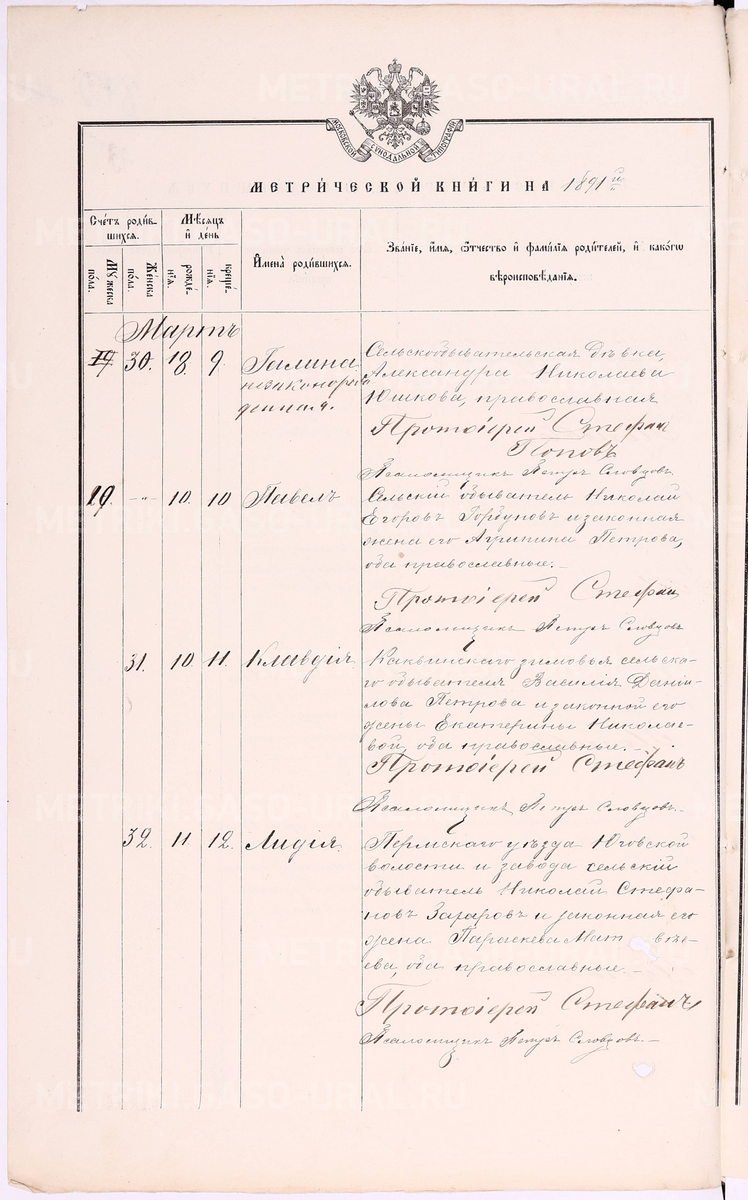 МОСКОВСКОЙ СѴНОДАЛЬНОЙ ТИПОГРАФІИ
МЕТРИ́ЧЕСКОЙ КНИ́ГИ НА 1891 й
Сче́тъ роди́в-
шихсѧ.
Мꙋ́жеска
по́ла.
Же́нска
по́ла.
Мѣ́сѧцъ
и҆ де́нь
рожде́-
нїѧ.
креще́-
нїѧ.
И҆мена̀ роди́вшихсѧ.
Зва́нїе, и҆́мѧ, ѻ҆́тчество и҆ фами́лїѧ роди́телей, и҆ како́гѡ
вѣроисповѣ́данїѧ.
Мартъ
30. 18. 9. Галина
незаконорж
денная.
Сельскообывательская дѣвка,
Александра Николаева
Юшкова, православная
Протоіерей Стефан
Поповъ
Псаломщикъ Петръ Словцовъ
19. —„— 10. 10 Павелъ
Сельскій обыватель Николай
Егоровъ Горбуновъ и законная
жена его Агрипина Петрова,
оба православные.—
Протоіерей Стефан
Псаломщикъ Петръ Словцовъ
31. 10. 11. Клавдія
Каквинскаго зимовья сельска-
го обывателя Василія Даніи-
лова Петрова и законной его
жены Екатерины Николае-
вой, оба православные.—
Протоіерей Стефанъ
Псаломщикъ Петръ Словцовъ.—
32. 11 12. Лидія.
Пермскаго уѣзда Юговской
волости и завода сельскій
обыватель Николай Стефа-
новъ Захаровъ и законная его
жена Параскева Мат вѣ-
ева, оба православные.—
Протоіерей Стефанъ
Псаломщикъ Петръ Словцовъ.—